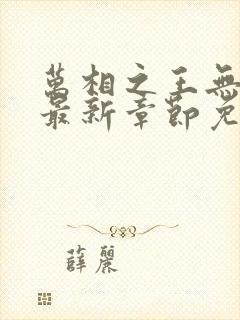 萬相之王無
最新章節免
薛麗